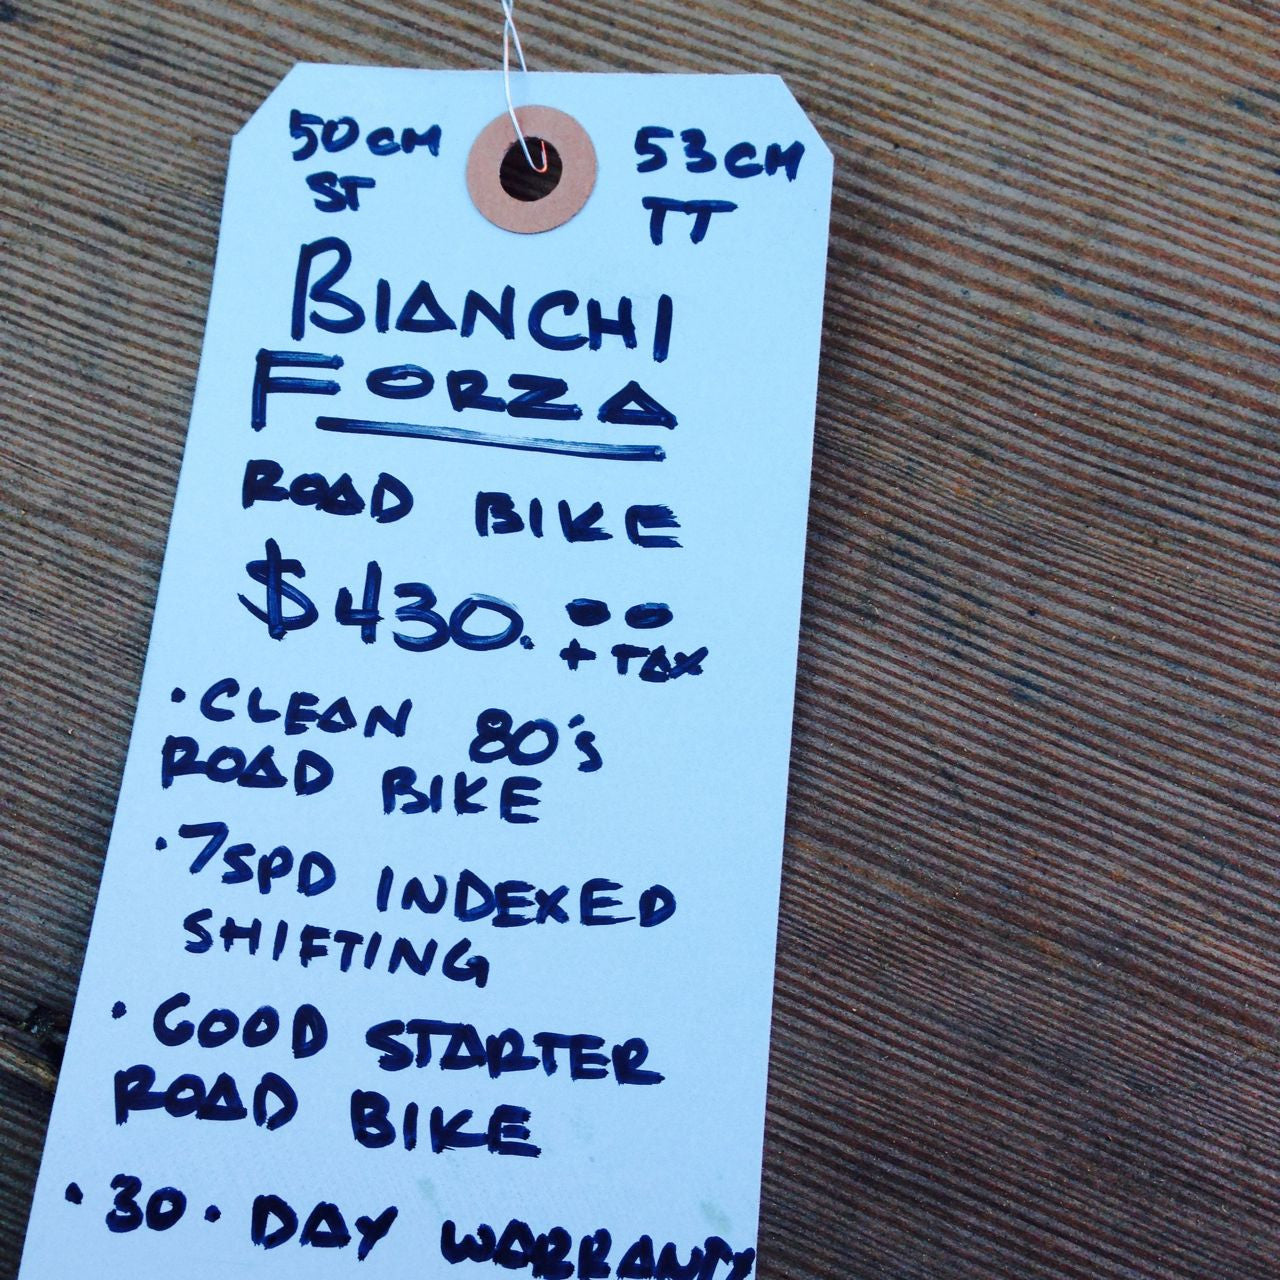 50CM 53CM
ST TT
BIANCHI
FORZA
ROAD BIKE
$430.00
+ TAX
• CLEAN 80's
ROAD BIKE
• 7SPD INDEXED
SHIFTING
• GOOD STARTER
ROAD BIKE
• 30 • DAY WARRANTY